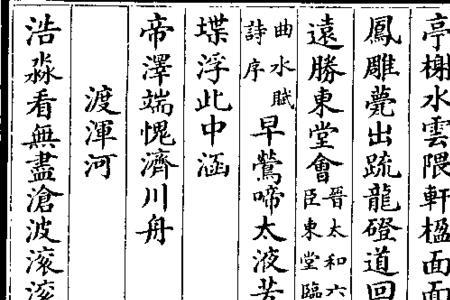 亭榭水雲隈軒楹面面
鳳雕甍出疏龍磴道回
遠勝東堂會
晉太和六
臣東堂臨
曲水賦
詩序
早鶯啼太液
堞浮此中涵
帝澤端愧濟川舟
渡渾河
浩淼看無盡滄波滾滾